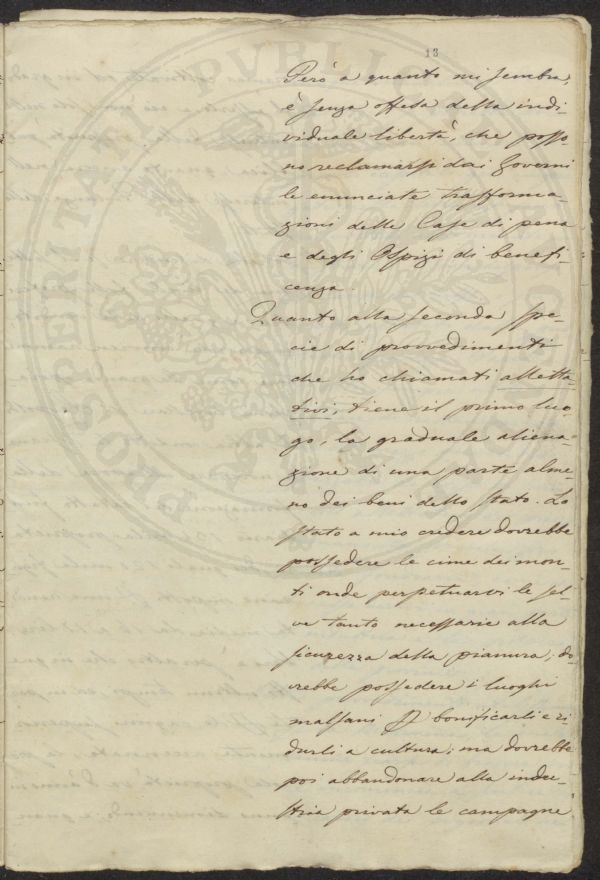 13
Però a quanto mi sembra,
è senza offesa della indi-
viduale libertà, che posso-
no reclamarsi dai Governi
le enunciate trasforma-
zioni delle Case di pena
e degli Ospizi di benefi-
cenza.
Quanto alla seconda spe-
cie di provvedimenti
che ho chiamati alletta-
tivi, tiene il primo luo-
go, la graduale aliena-
zione di una parte alme-
no dei beni dello Stato. Lo
Stato a mio credere dovrebbe
possedere le cime dei mon-
ti onde perpetuarvi le sel-
ve tanto necessarie alla
sicurezza della pianura, do-
vrebbe possedere i luoghi
malsani bonificarli e ri-
durli a cultura; ma dovrebbe
poi abbandonare alla indu-
stria privata le campagne
PROSPERITATI PVBLICAE